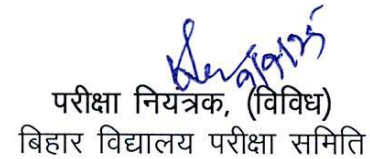 परीक्षा नियंत्रक, (विविध)
बिहार विद्यालय परीक्षा समिति